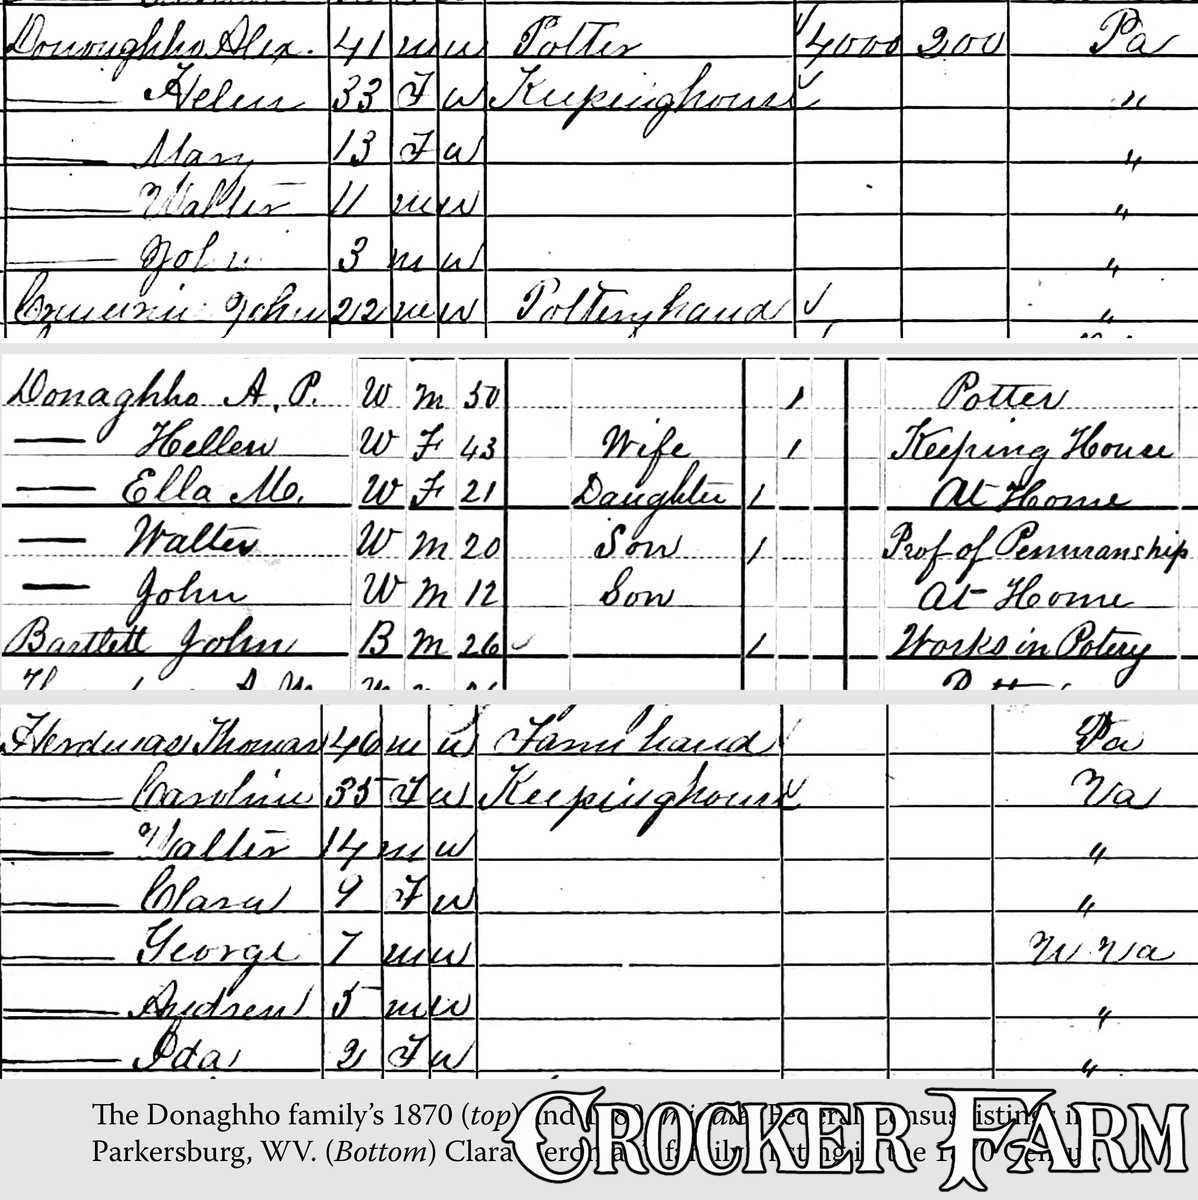 Donoughho Alex. 41 m w Potter 4000 200 Pa
— Helen 33 F w Keepinghouse "
— Mary 13 F w "
— Walter 11 m w "
— John 3 m w "
John 22 m w Potteryhand "
Donaghho A. P. W M 50 1 Potter
— Hellen W F 43 Wife 1 Keeping House
— Ella M. W F 21 Daughter 1 At Home
— Walter W M 20 Son 1 Prof of Penmanship
— John W M 12 Son At Home
Bartlett John B M 26 1 Works in Potery
Thomas 46 m w Farm hand Pa
— Caroline 35 F w Keepinghouse Va
— Walter 14 m w "
— Clara 9 F w "
— George 7 m w W Va
— Andrew 5 m w "
— Ida 2 F w "
The Donaghho family's 1870 (top) and 1880 (middle) Federal Census listings in
Parkersburg, WV. (Bottom) Clara family's listing in the 1870 Census.
CROCKER FARM